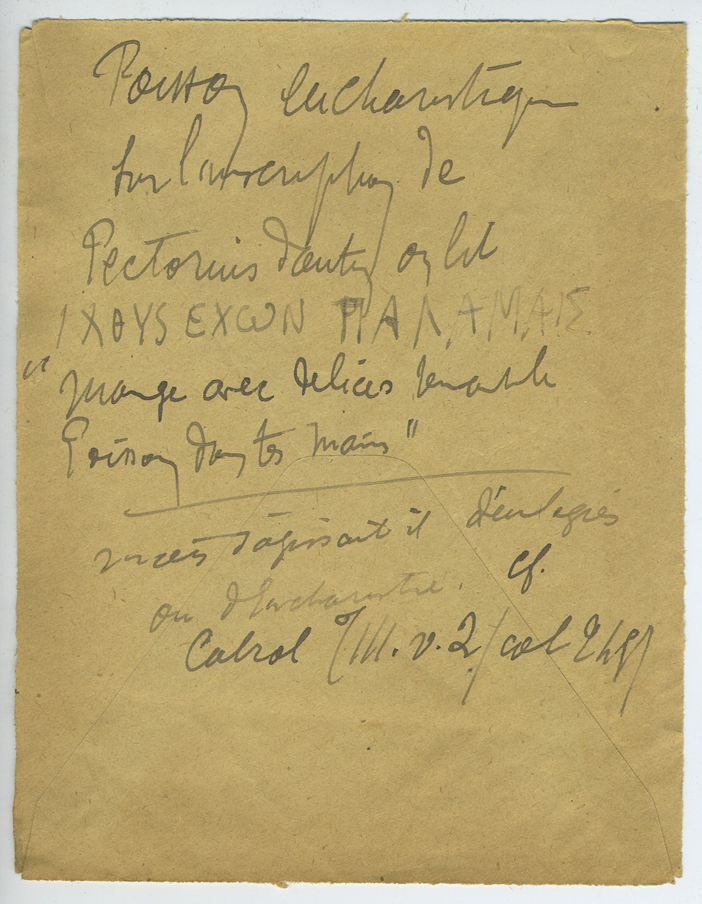 Poisson eucharistique
sur l'inscription de
Pectorius d'Autun on lit
ΙΧΘΥS ΕΧωΝ ΠΑΛΑΜΑΙΣ
"mange avec délices
Poisson dans tes mains"
s'agissait il d'eulogies
ou d'Eucharistie. cf.
Cabrol (III. v. 2/ col